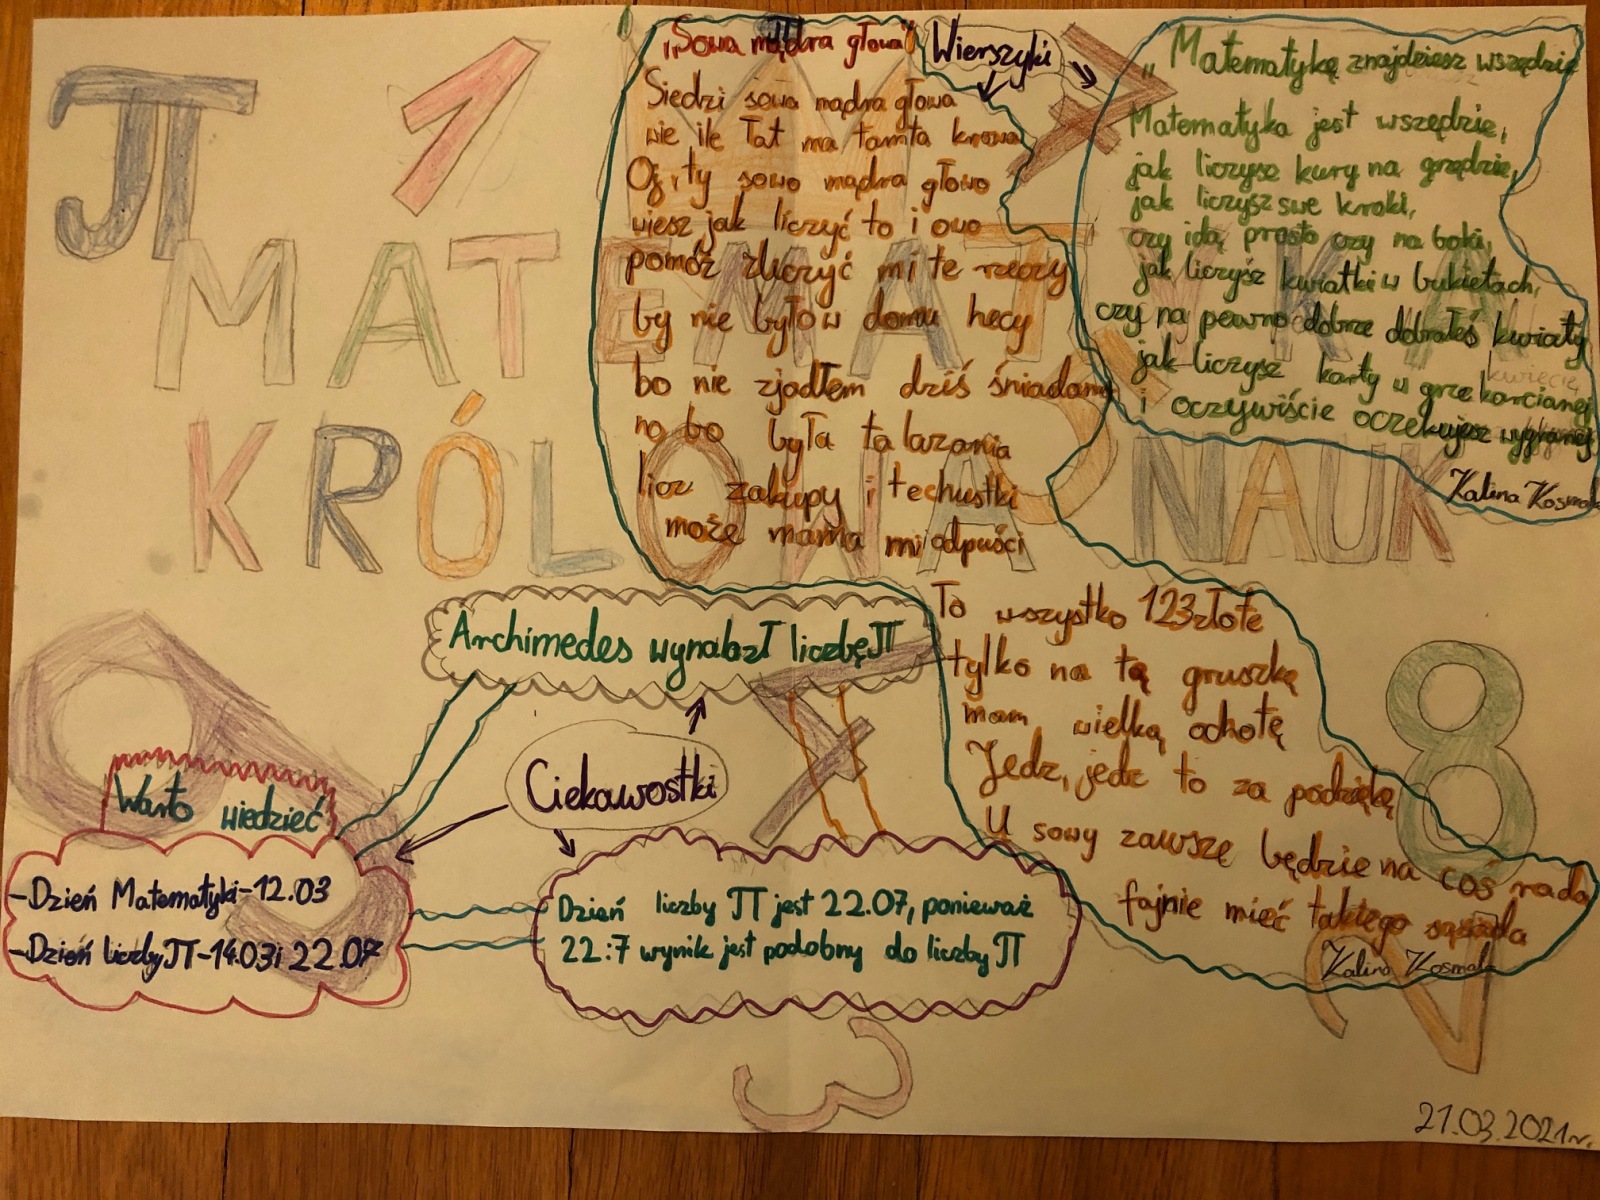 π 1 7
MATEMATYKA
KRÓLOWA NAUK
Wierszyki
„Sowa mądra głowa"
Siedzi sowa mądra głowa
wie ile lat ma tamta krowa
Oj, ty sowo mądra głowo
wiesz jak liczyć to i owo
pomóż zliczyć mi te rzeczy
by nie było w domu hecy
bo nie zjadłem dziś śniadania
no bo była ta lazania
licz zakupy i te chustki
może mama mi odpuści
To wszystko 123złote
tylko na tą gruszkę
mam wielką ochotę
Jedz, jedz to za podziękę
U sowy zawsze będzie na coś rada
fajnie mieć takiego sąsiada
Kalina Kosmala
„Matematykę znajdziesz wszędzie
Matematyka jest wszędzie,
jak liczysz kury na grzędzie,
jak liczysz swe kroki,
czy idą prosto czy na boki,
jak liczysz kwiatki w bukietach,
czy na pewno dobrze dobrałeś kwiaty
jak liczysz karty w grze karcianej
i oczywiście oczekujesz wygranej
Kalina Kosmala
Archimedes wynalazł liczbę π
Ciekawostki
Warto wiedzieć
-Dzień Matematyki-12.03
-Dzień liczby π-14.03 i 22.07
Dzień liczby π jest 22.07, ponieważ
22:7 wynik jest podobny do liczby π
9 7 8
3 2
21.03.2021r.